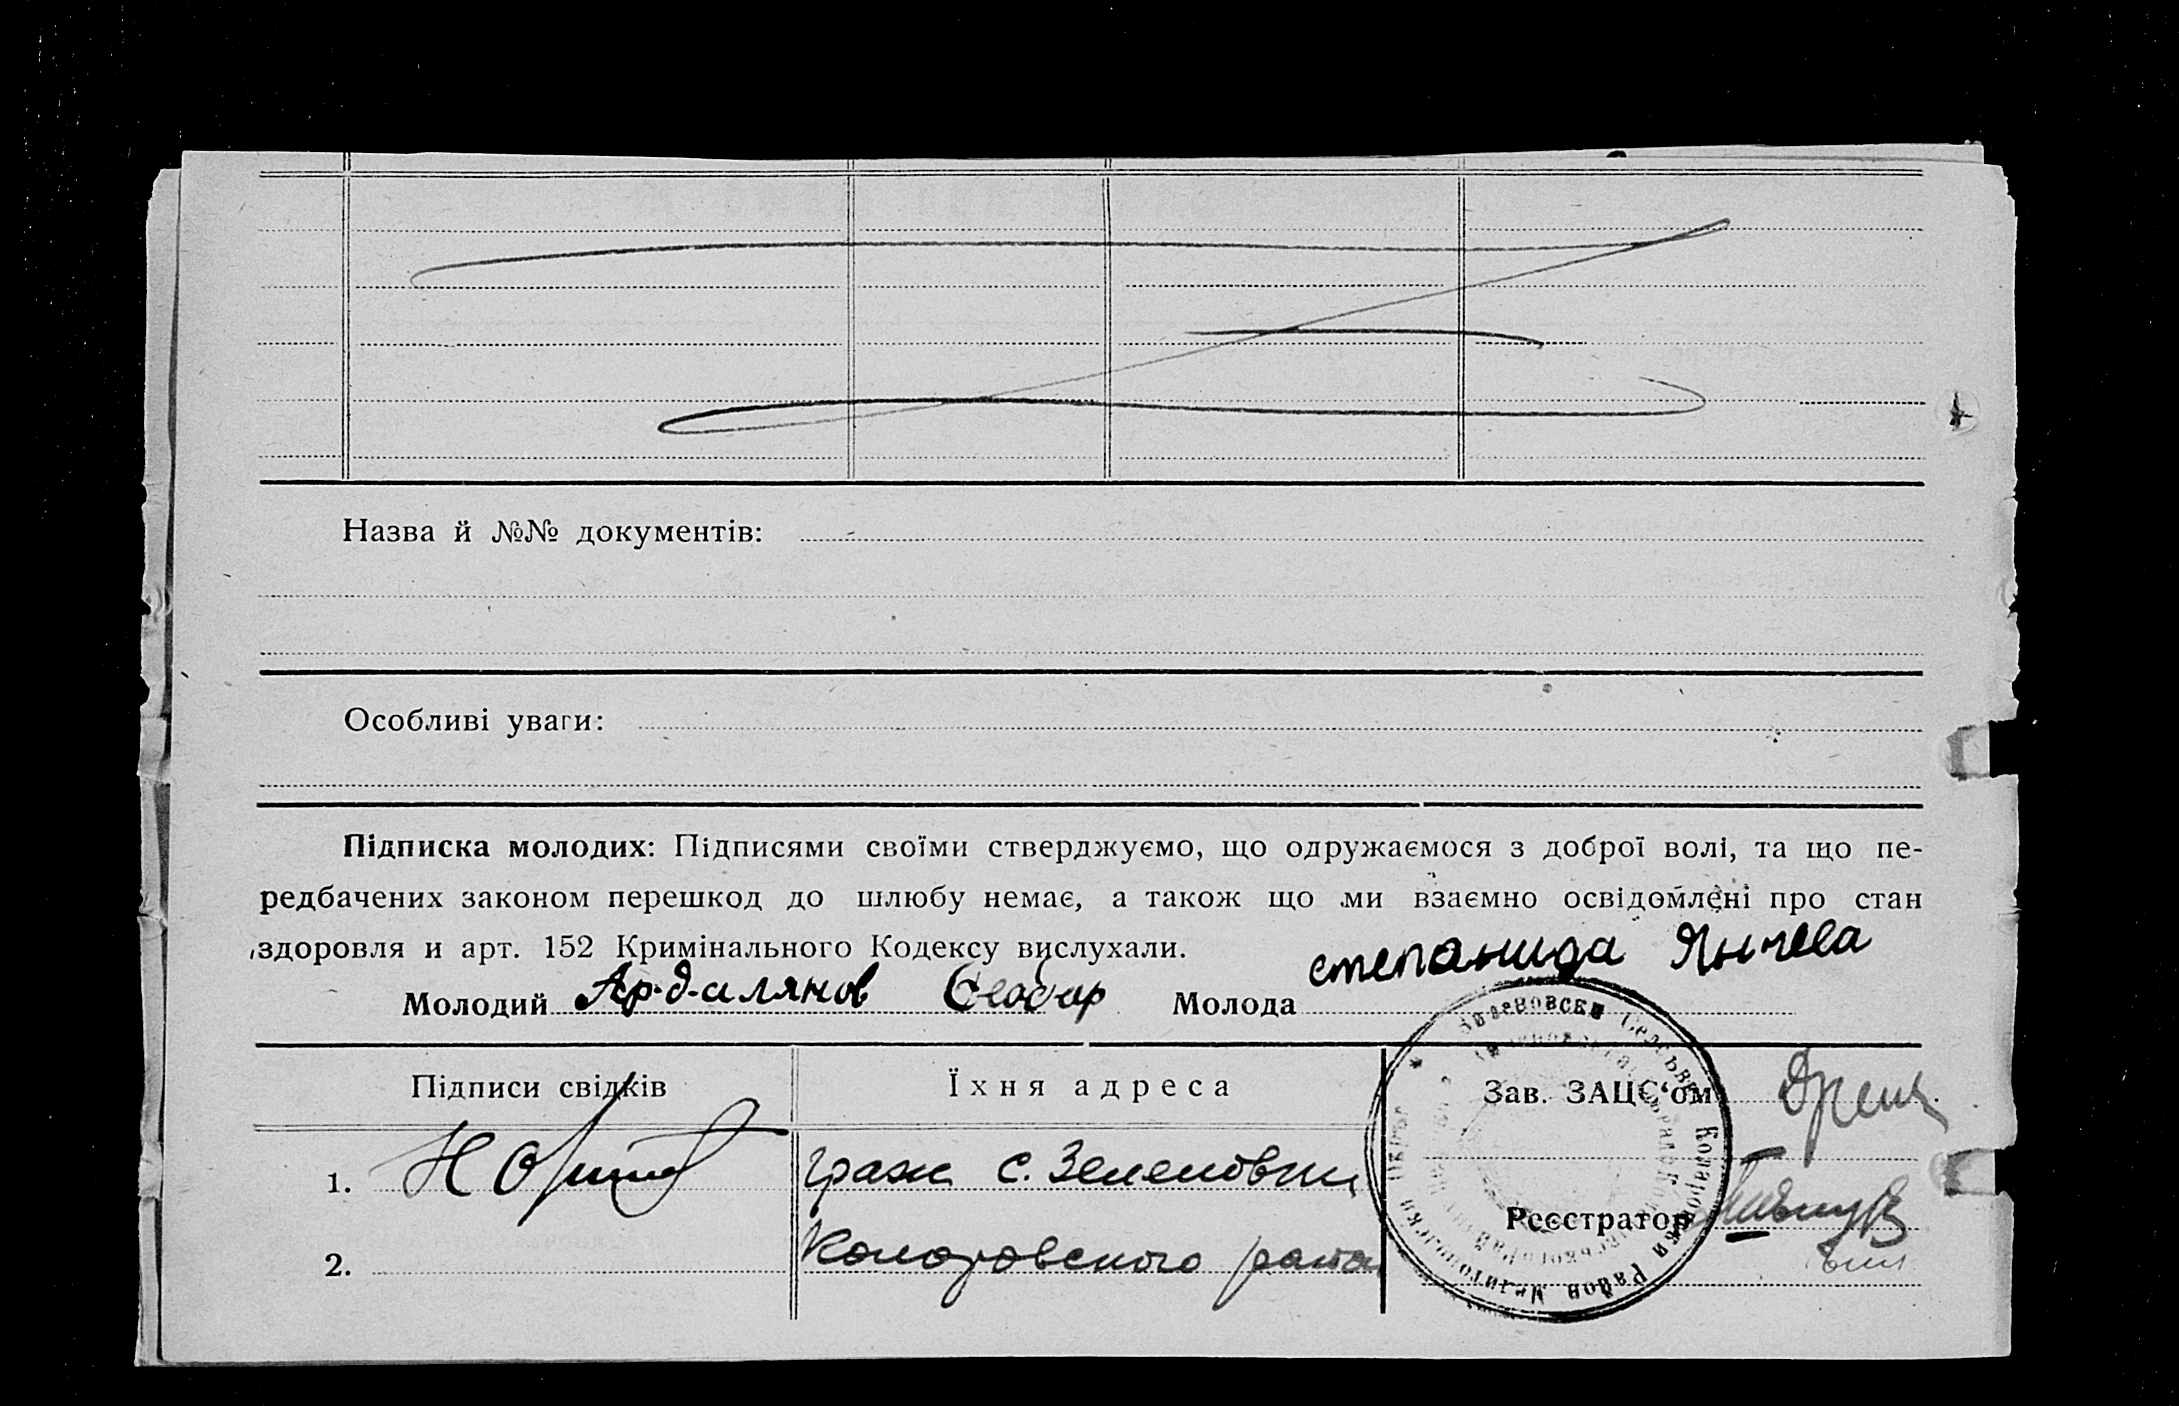 Назва й №№ документів:
Особливі уваги:
Підписка молодих: Підписями своїми стверджуємо, що одружаємося з доброї волі, та що пе-
редбачених законом перешкод до шлюбу немає, а також що ми взаємно освідомлені про стан
здоровля и арт. 152 Кримінального Кодексу вислухали.
Молодий Ар-д-алянов Молода степанида Янчева
Підписи свідків Їхня адреса Зав. ЗАЦС‘ом
1. граж с. Зеленовки
Реєстратор
2. Коларовского